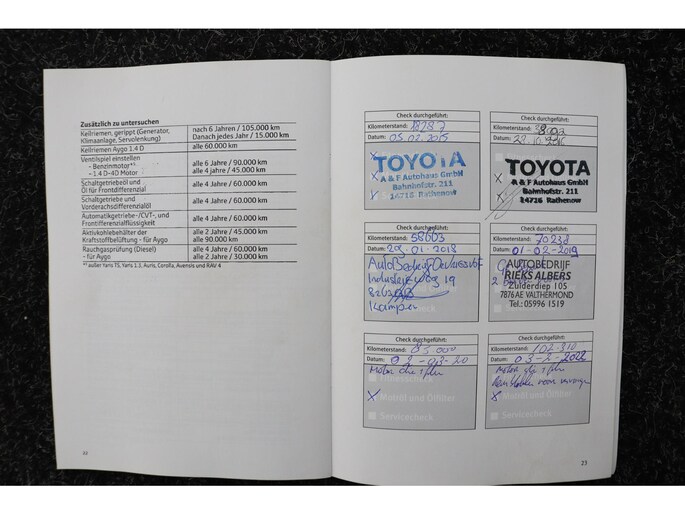 Zusätzlich zu untersuchen
Keilriemen, gerippt (Generator, Klimaanlage, Servolenkung)
nach 6 Jahren / 105.000 km
Danach jedes Jahr / 15.000 km
Keilriemen Aygo 1.4 D
alle 60.000 km
Ventilspiel einstellen
- Benzinmotor*¹
alle 6 Jahre / 90.000 km
- 1.4 D-4D Motor
alle 4 Jahre / 45.000 km
Schaltgetriebeöl und
Öl für Frontdifferenzial
alle 4 Jahre / 60.000 km
Schaltgetriebe und
Vorderachsdifferenzialöl
alle 4 Jahre / 60.000 km
Automatikgetriebe-/CVT-, und
Frontdifferenzialflüssigkeit
alle 4 Jahre / 60.000 km
Aktivkohlebehälter der
Kraftstoffbelüftung - für Aygo
alle 2 Jahre / 45.000 km
alle 90.000 km
Rauchgasprüfung (Diesel)
- für Aygo
alle 4 Jahre / 60.000 km
alle 2 Jahre / 30.000 km
Check durchgeführt:
Kilometerstand: 18287
Datum: 05.02.2015
TOYOTA
A & F Autohaus GmbH
Bahnhofstr. 211
14715 Rathenow
Check durchgeführt:
Kilometerstand:
Datum:
TOYOTA
A & F Autohaus GmbH
Bahnhofstr. 211
14715 Rathenow
Check durchgeführt:
Kilometerstand: 58603
Datum: 29-01-2018
Industrieweg 19
Kampen
Check durchgeführt:
Kilometerstand: 70238
Datum: 01-02-2019
AUTOBEDRIJF
RIEKS ALBERS
Zuiderdiep 105
7876 AE VALTHERMOND
Tel.: 05996 1519
Check durchgeführt:
Kilometerstand: 85000
Datum: 03-03-20
Motor olie + filter
X Motoröl und Ölfilter
Servicecheck
Check durchgeführt:
Kilometerstand: 102.310
Datum: 03-2-2022
Motor olie + filter
X Motoröl und Ölfilter
Servicecheck
23